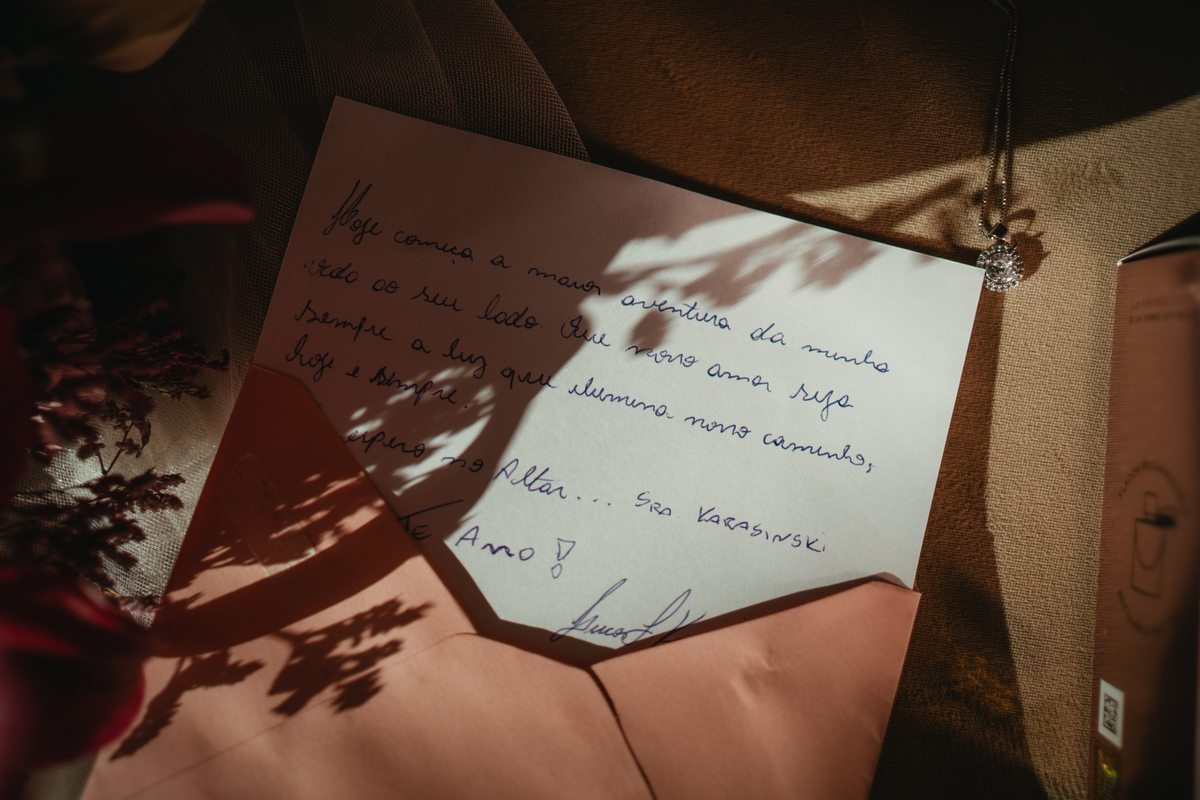 Hoje começa a maior aventura da minha
vida ao seu lado. Que nosso amor seja
sempre a luz que ilumina nosso caminho,
hoje e sempre.
espero no Altar... SRA KARASINSKI
TE AMO!